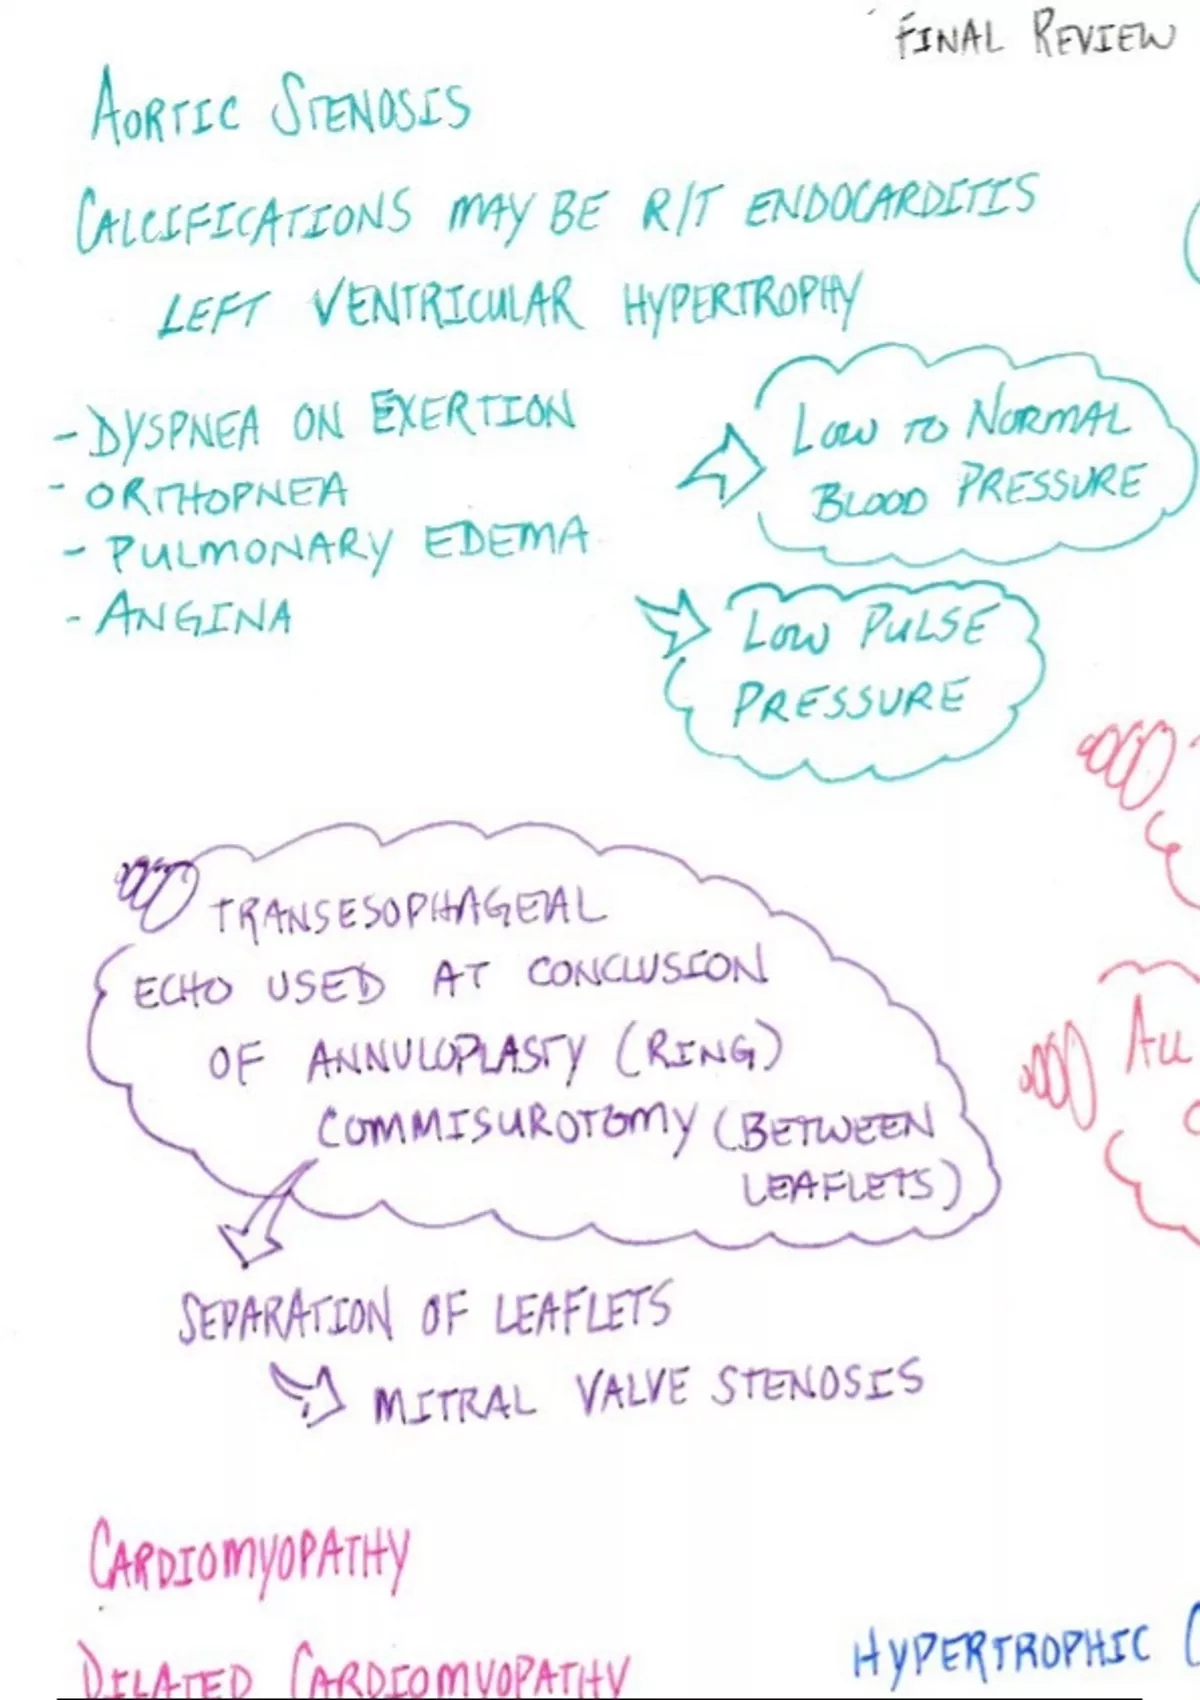 FINAL REVIEW
AORTIC STENOSIS
CALCIFICATIONS MAY BE R/T ENDOCARDITIS
LEFT VENTRICULAR HYPERTROPHY
- DYSPNEA ON EXERTION
- ORTHOPNEA
- PULMONARY EDEMA
- ANGINA
LOW TO NORMAL
BLOOD PRESSURE
LOW PULSE
PRESSURE
TRANSESOPHAGEAL
ECHO USED AT CONCLUSION
OF ANNULOPLASTY (RING)
COMMISUROTOMY (BETWEEN
LEAFLETS)
ALL
SEPARATION OF LEAFLETS
MITRAL VALVE STENOSIS
CARDIOMYOPATHY
DILATED CARDIOMYOPATHY
HYPERTROPHIC C